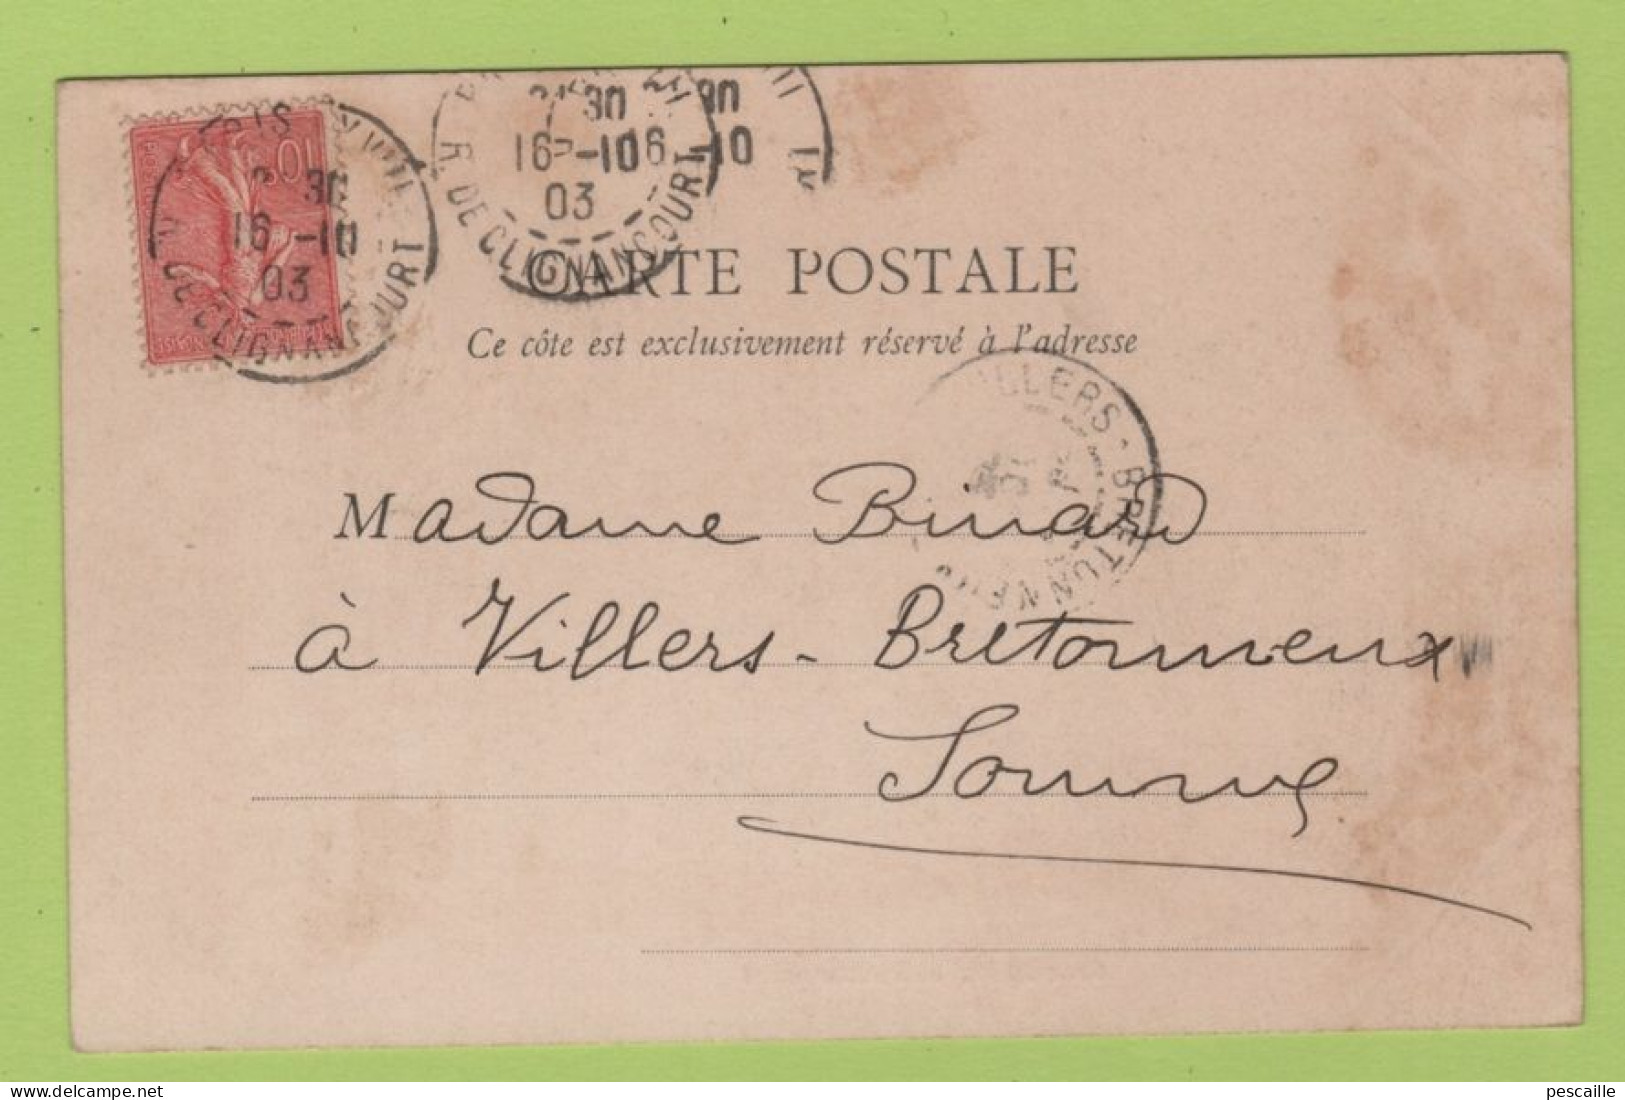 16 -10
03
R. DE CLIGNANCOURT
16 -10
03
DE CLIGNANCOURT
CARTE POSTALE
Ce côte est exclusivement réservé à l'adresse
VILLERS-BRETONNEUX
Madame Binard
à Villers-Bretonneux
Somme
pescaille